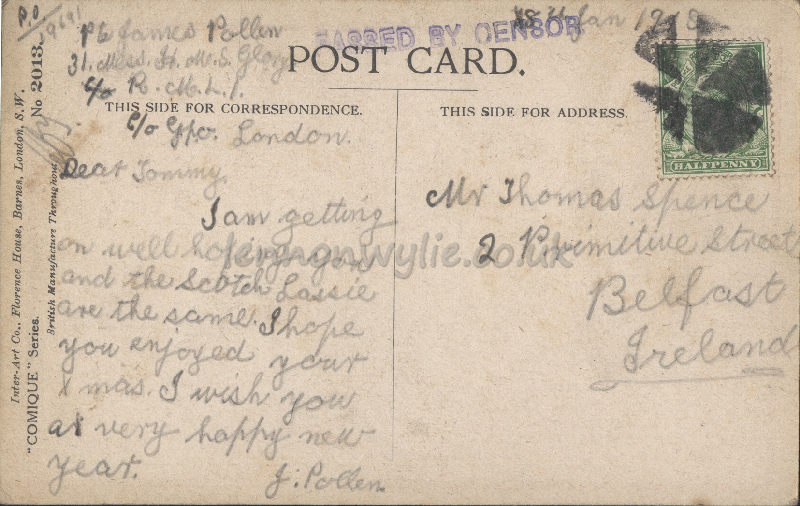 P.O
19691
Pte James Pollen
31. Mess. H. M. S. Glory
c/o R. M. L. I.
C/o Gpo. London.
PASSED BY CENSOR
Jan 19
POST CARD.
THIS SIDE FOR CORRESPONDENCE.
THIS SIDE FOR ADDRESS.
HALFPENNY
Dear Tommy,
I am getting
on well hoping you
and the Scotch Lassie
are the same. I hope
you enjoyed your
Xmas. I wish you
a very happy new
year.
J. Pollen
Mr Thomas Spence
2 Primitive Street
Belfast
Ireland
Inter-Art Co., Florence House, Barnes, London, S.W.
"COMIQUE" Series.
No 2013.
British Manufacture Throughout